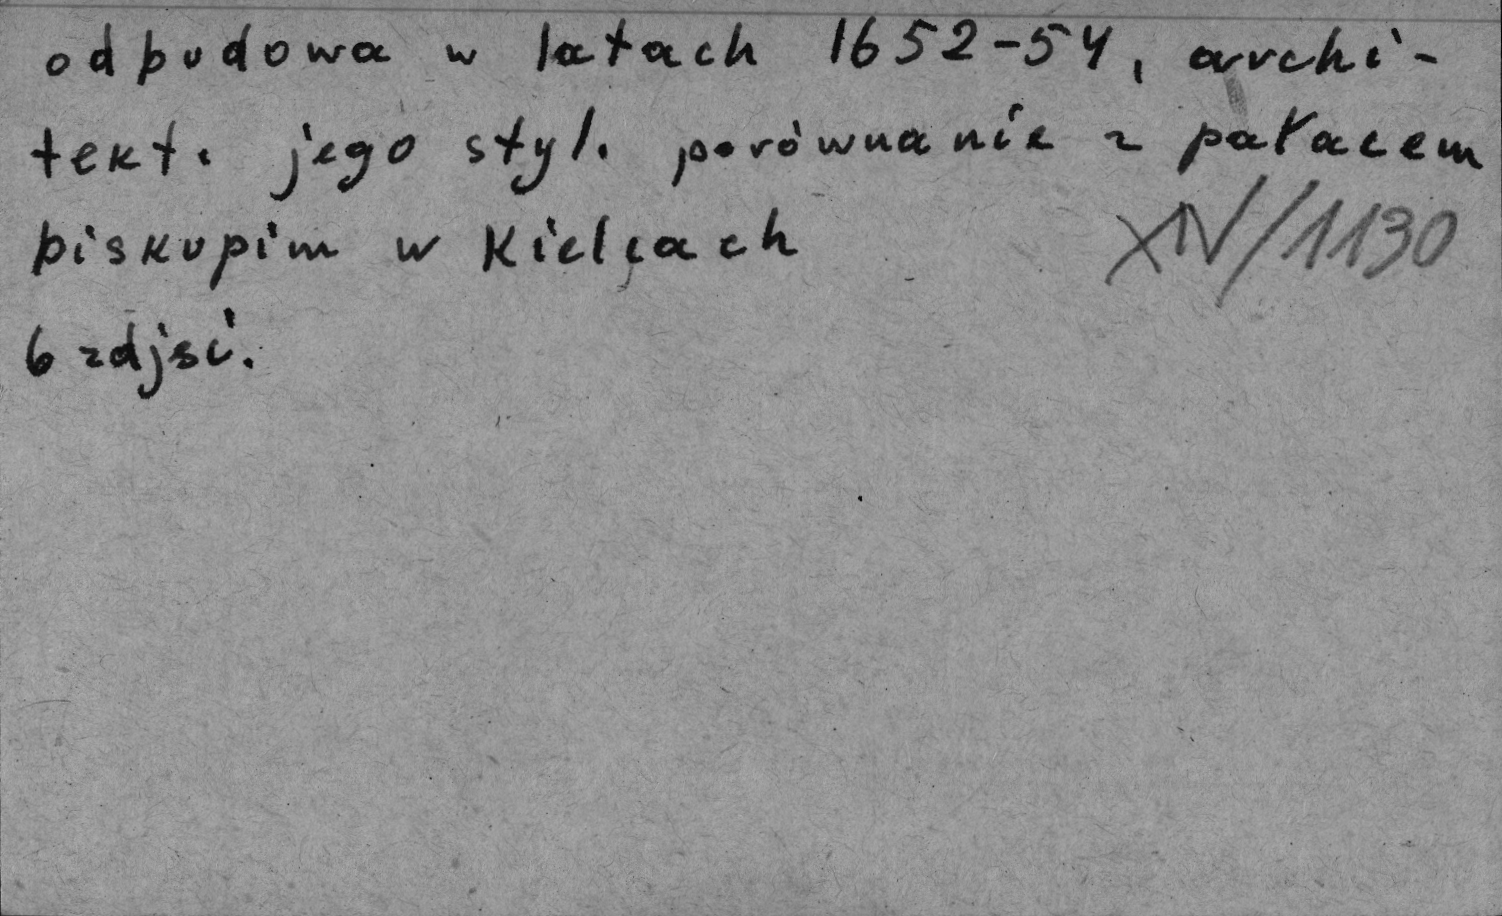 odbudowa w latach 1652-54, archi-
tekt. jego styl. porównanie z pałacem
biskupim w Kielcach
XIV/1130
6 zdjęć.